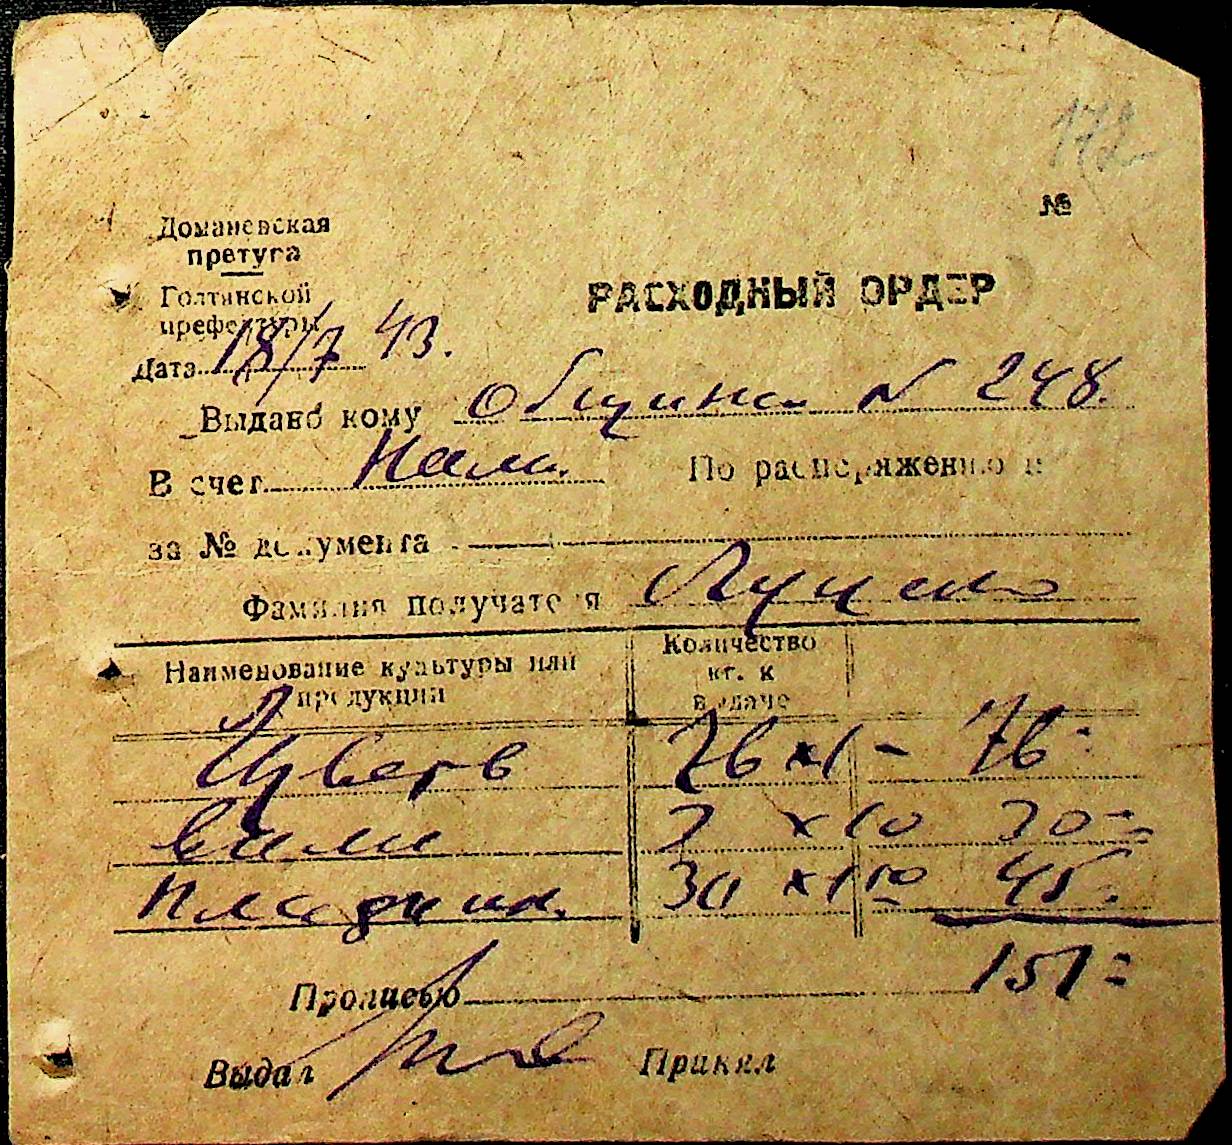 172
№
Доманевская
претура
Голтянской
префектуры
РАСХОДНЫЙ ОРДЕР
Дата 18/7 43.
Выдано кому Общине № 248.
В счет Нали. По распоряжению и
за № документа
Фамилия получателя
Наименование культуры или продукции Количество кг. к выдаче
76 х 1 - 76-
вили 2 х 10 20=
30 х 1 50 45-
151=
Прописью
Выдал Принял